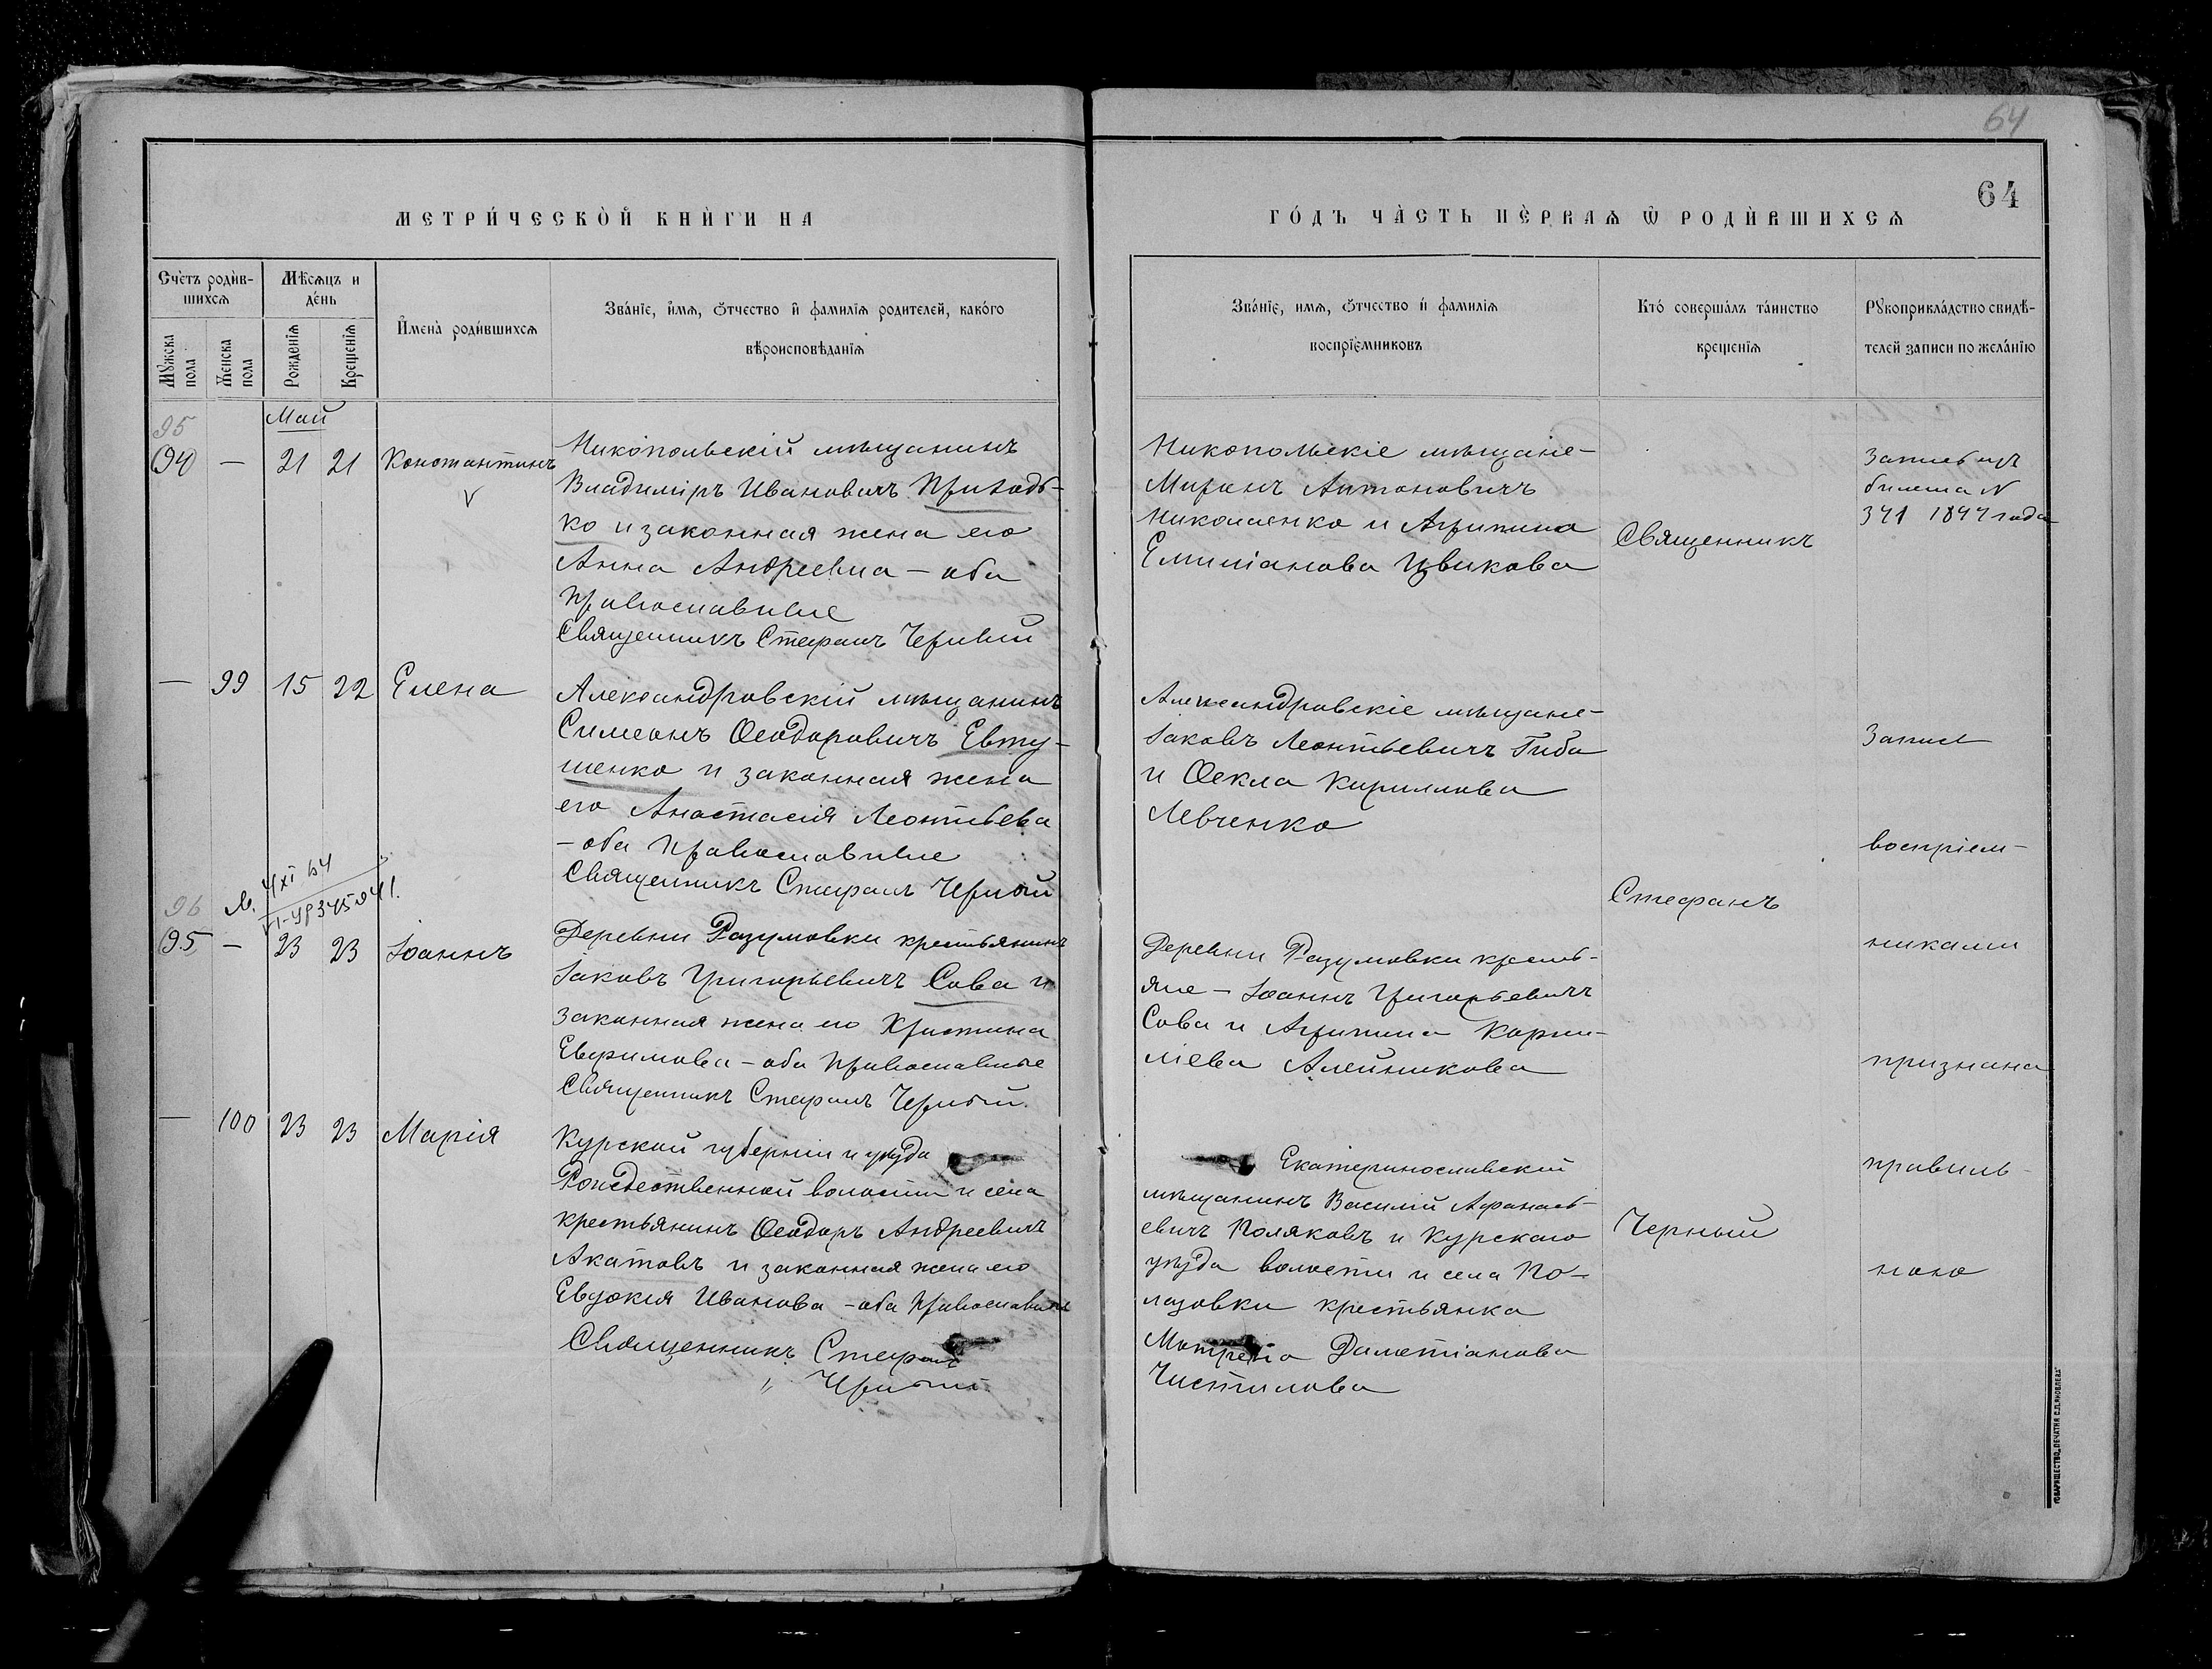 64
64
МЕТРИ́ЧЕСКОЙ КНИ́ГИ НА
ГО́ДЪ ЧА́СТЬ ПЕ́РВАѦ Ѿ РОДИ́ВШИХСѦ
Сче́тъ роди́в-
шихсѧ
Мꙋжеска
пола
Женска
пола
Мѣ́сѧцъ и
де́нь
Рожденїѧ
Крещенїѧ
И҆мена̀ роди́вшихсѧ
Зва́нїе, и҆́мѧ, ѻ҆́тчество и҆ фамилїѧ родителей, како́го
вѣроисповѣ́данїѧ
Зва́нїе, имѧ, ѻ҆́тчество и҆ фамилїѧ
воспрїе́мниковъ
Кто́ совершалъ та́инство
крещенїѧ
Рꙋкоприкла́дство свидѣ́-
телей записи по жела́нїю
Май
95
94 — 21 21 Константинъ
Никопольскій мѣщанинъ
Владиміръ Ивановичъ Приходь-
ко и законная жена его
Анна Андреевна – оба
православные
Священникъ Стефанъ Черный
Никопольскіе мѣщане –
Миронъ Антоновичъ
Николаенко и Агрипина
Емиліанова Цвикова
Священникъ
Запись изъ
билета N
371 1897 года
— 99 15 22 Елена
Александровскій мѣщанинъ
Симеонъ Ѳеодоровичъ Евту-
шенко и законная жена
его Анастасія Леонтьева
– оба православные
Священникъ Стефанъ Черный
Александровскіе мѣщане –
Іаковъ Леонтьевичъ Гиба
и Ѳекла Кириллова
Левченко
Запись
воспріем-
96
95 — 23 23 Іоаннъ
Деревни Разумовки крестьянинъ
Іаковъ Григорьевичъ Сова и
законная жена его Христина
Евфимова – оба православные
Священникъ Стефанъ Черный.
Деревни Разумовки кресть-
яне – Іоаннъ Григорьевичъ
Сова и Агрипина Корни-
ліева Алейникова
Стефанъ
никами
признана
— 100 23 23 Марія
Курской губерніи и уѣзда
Рождественской волости и села
крестьянинъ Ѳеодоръ Андреевичъ
Акатовъ и законная жена его
Евдокія Иванова – оба православные
Священникъ Стефанъ
Черный
Екатеринославскій
мѣщанинъ Василій Афанась-
евичъ Поляковъ и Курскаго
уѣзда волости и села По-
крестьянка
Матрена
Чистилова
Черный
правиль-
ною